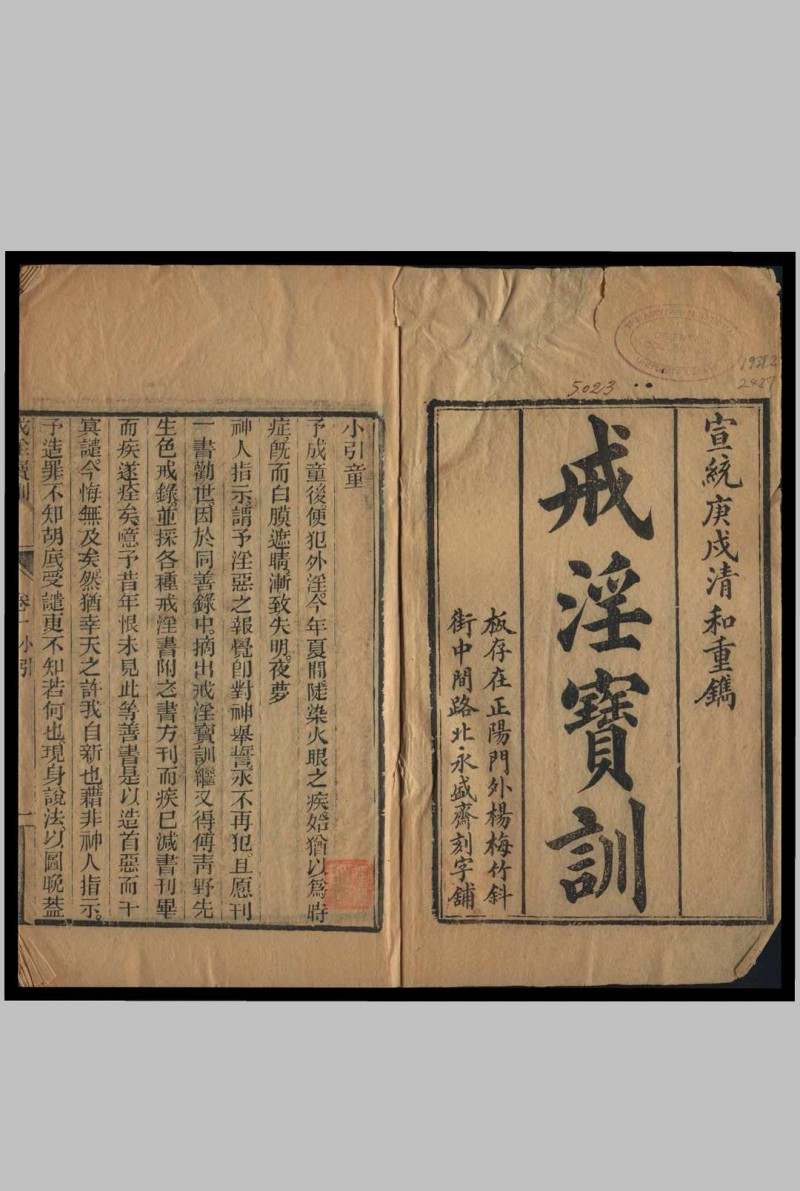 宣統庚戌清和重鐫
戒淫寶訓
板存在正陽門外楊梅竹斜
街中間路北永盛齋刻字舖
5023
小引童
予成童後便犯外淫今年夏間陡染火眼之疾始猶以爲時
症旣而白膜遮睛漸致失明夜夢
神人指示謂予淫惡之報覺卽對神舉誓永不再犯且愿刊
一書勸世因於同善錄中摘出戒淫寶訓繼又得傅青野先
生色戒錄並採各種戒淫書附之書方刊而疾已減書刊畢
而疾遂痊矣噫予昔年恨未見此等善書是以造首惡而干
冥譴今悔無及矣然猶幸天之許我自新也藉非神人指示
予造罪不知胡底受譴更不知若何也現身說法以圖晚葢
戒淫寶訓 卷一小引 一